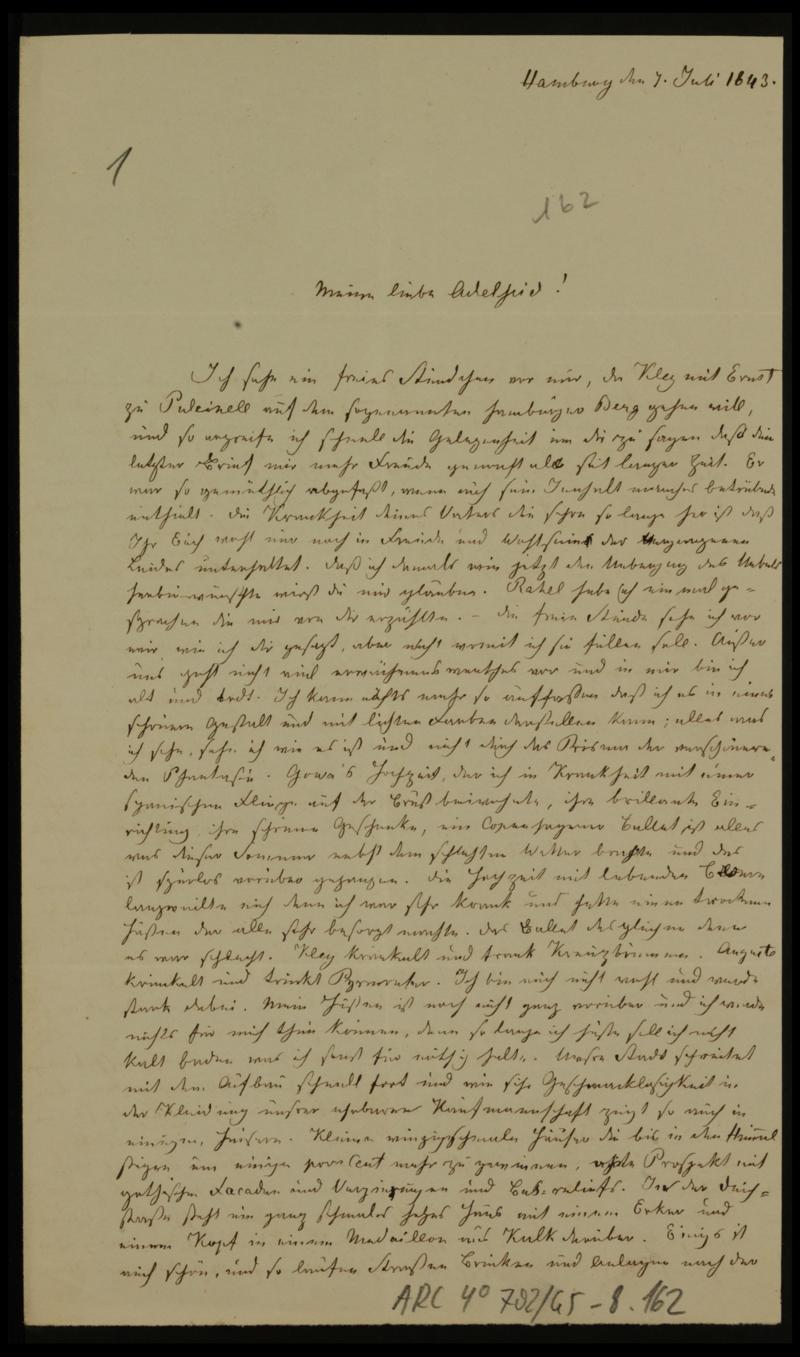 Hamburg den 7. Juli 1843.
1
162
Meine liebe Adelheid!
Ich sehe ein freies Stündchen vor mir, da Kley mit Ernst
zu Pulcinell auf dem sogenannten hamburger Berg gehen will,
und so ergreife ich schnell die Gelegenheit um dir zu sagen daß dein
letzter Brief mir mehr Freude gemacht als seit langer Zeit. Er
war so gemüthlich abgefaßt, wenn auch sein Inhalt manches betrübende
enthielt. Die Krankheit deines Vaters die schon so lange her ist daß
Ihr Euch wohl nur noch in Freude und Wohlsein der vergangenen
Leides unterhaltet. Daß ich damals wie jetzt den Uebergang des Uebels
herbei wünschte wirst du mir glauben. Rahel habe ich einmal ge-
sprochen die mir von dir erzählte. – Die freie Stunde sehe ich vor
mir, wie ich dir gesagt, aber nicht womit ich sie füllen soll. Außer
uns geht nicht viel erwähnenswerthes vor und in mir bin ich
alt und todt. Ich kann nichts mehr so auffassen daß ich es in einer
schönen Gestalt und mit lichten Farben darstellen kann; alles was
ich sehe, sehe ich wie es ist und nicht durch das Prisma der verschönern-
den Phantasie. Gowa's Hochzeit, der ich in Krankheit mit einer
spanischen Fliege auf der Brust beiwohnte, ihre brillante Ein-
richtung, ihre schönen Geschenke, ein Copenhagener Ballet ist alles
was dieser Sommer nebst dem schlechten Wetter brachte und das
ist spurlos vorüber gegangen. Die Hochzeit mit lebenden Bildern
langweilte mich denn ich war sehr krank und hatte einen trockenen
Husten der alle sehr besorgt machte. Das Ballet desgleichen denn
es war schlecht. Kley kränkelt und trank Kreuzbrunnen. Auguste
kränkelt und trinkt Pyrmonter. Ich bin auch nicht wohl und werde
stark dabei. Mein Husten ist noch nicht ganz vorüber und ich werde
nichts für mich thun können, denn so lange ich huste soll ich nicht
kalt baden was ich sonst für nöthig halte. Unsre Stadt schreitet
mit dem Aufbau schnell fort und wie sich Geschmacklosigkeit in
der Kleidung unsrer ehrbaren Kaufmannschaft zeigt so auch in
einigen Häusern. Kleine winzigschmale Häuser die bis in den Himmel
steigen um einige pro Cent mehr zu gewinnen, Prospekt mit
gothischen Facaden und Verzierungen und Basreliefs. In der Deich-
straße steht ein ganz schmales hohes Haus mit einem Erker und
einem Kopf in einem Medaillon aus Kalk darüber. Einiges ist
auch schön, und so laufen Straßen Brücken und Anlagen nach der
ARC 4° 792/G5-8.162